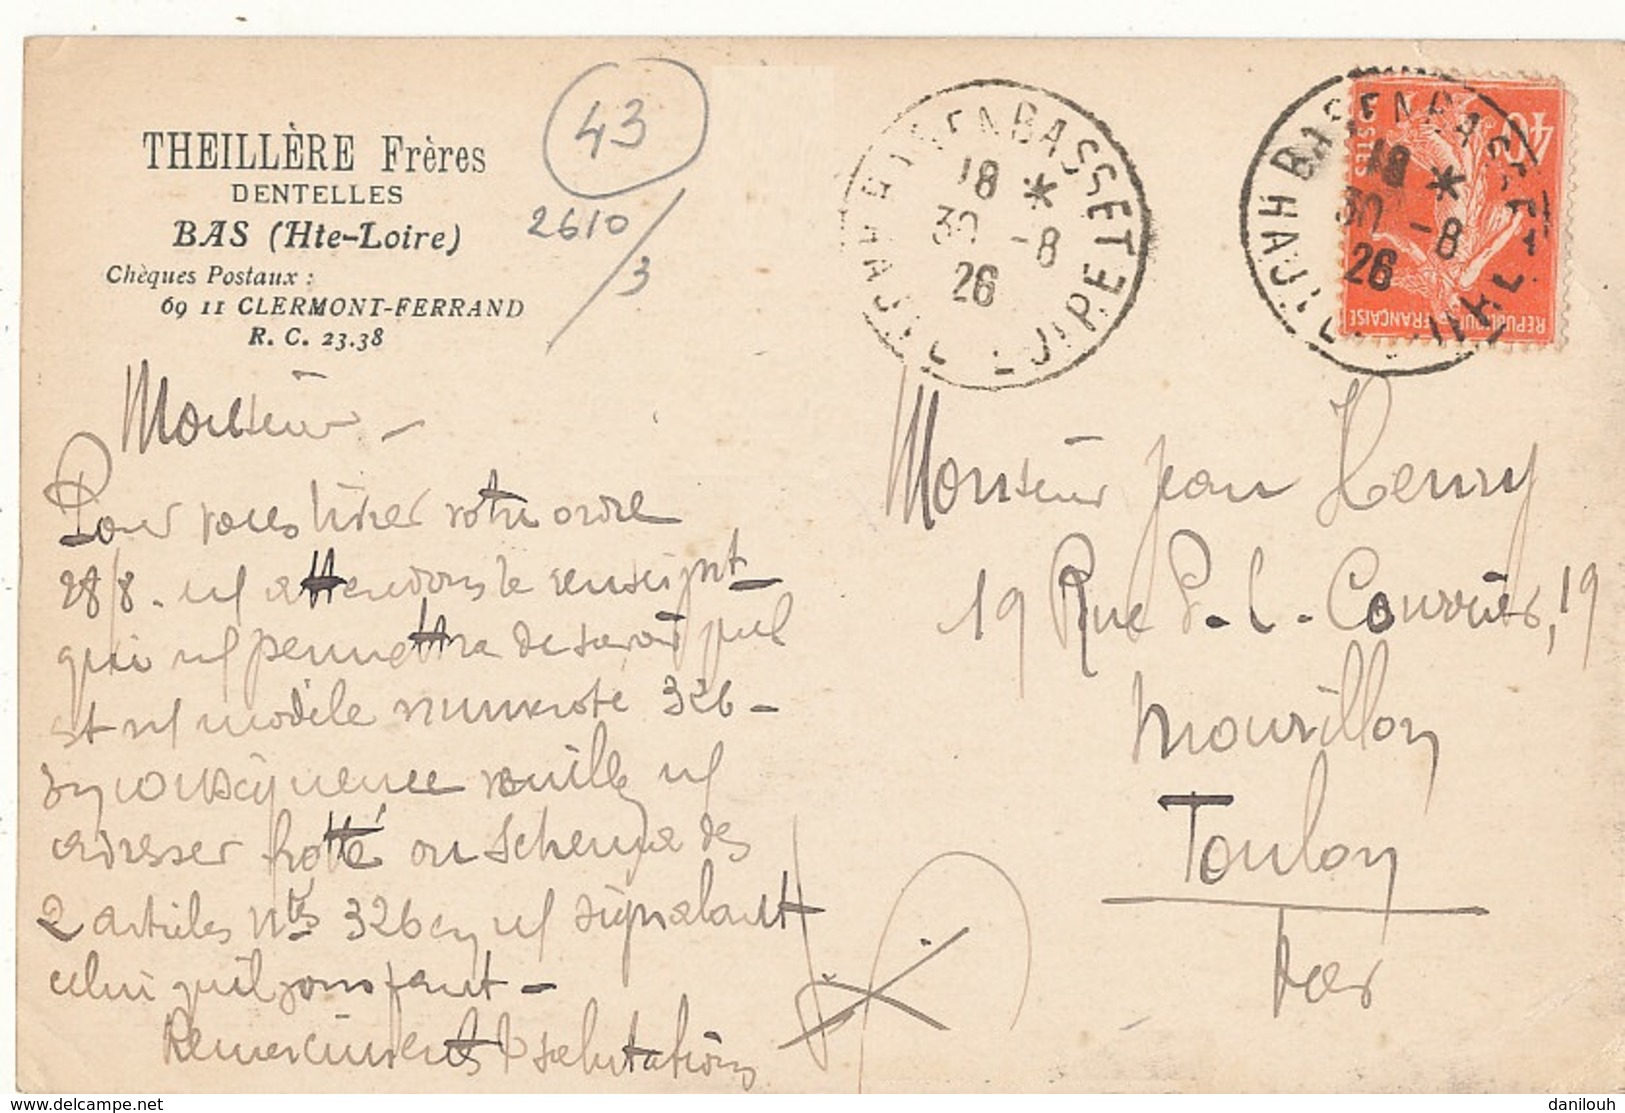 THEILLÈRE Frères
DENTELLES
BAS (Hte-Loire)
Chèques Postaux :
69 11 CLERMONT-FERRAND
R. C. 23.38
43
2610/3
BAS EN BASSET
HAUTE LOIRE
18 *
30 -8
26
BAS EN BASSET
HAUTE LOIRE
18 *
30 -8
26
40
POSTES
REPUBLIQUE FRANÇAISE
Monsieur -
Pour vous livrer votre ordre
28/8. n/ attendons le renseignt
qui n/ permettra de savoir quel
est n/ modèle numéroté 326 -
En conséquence veuillez n/
adresser frotté ou schema des
2 articles Nos 326 en n/ signalant
celui qu'il vous faut -
Remerciments & salutations
Monsieur Jean Henry
19 Rue P.-L. - Courrier, 19
Mourillon
Toulon
Var
delcampe.net
danilouh